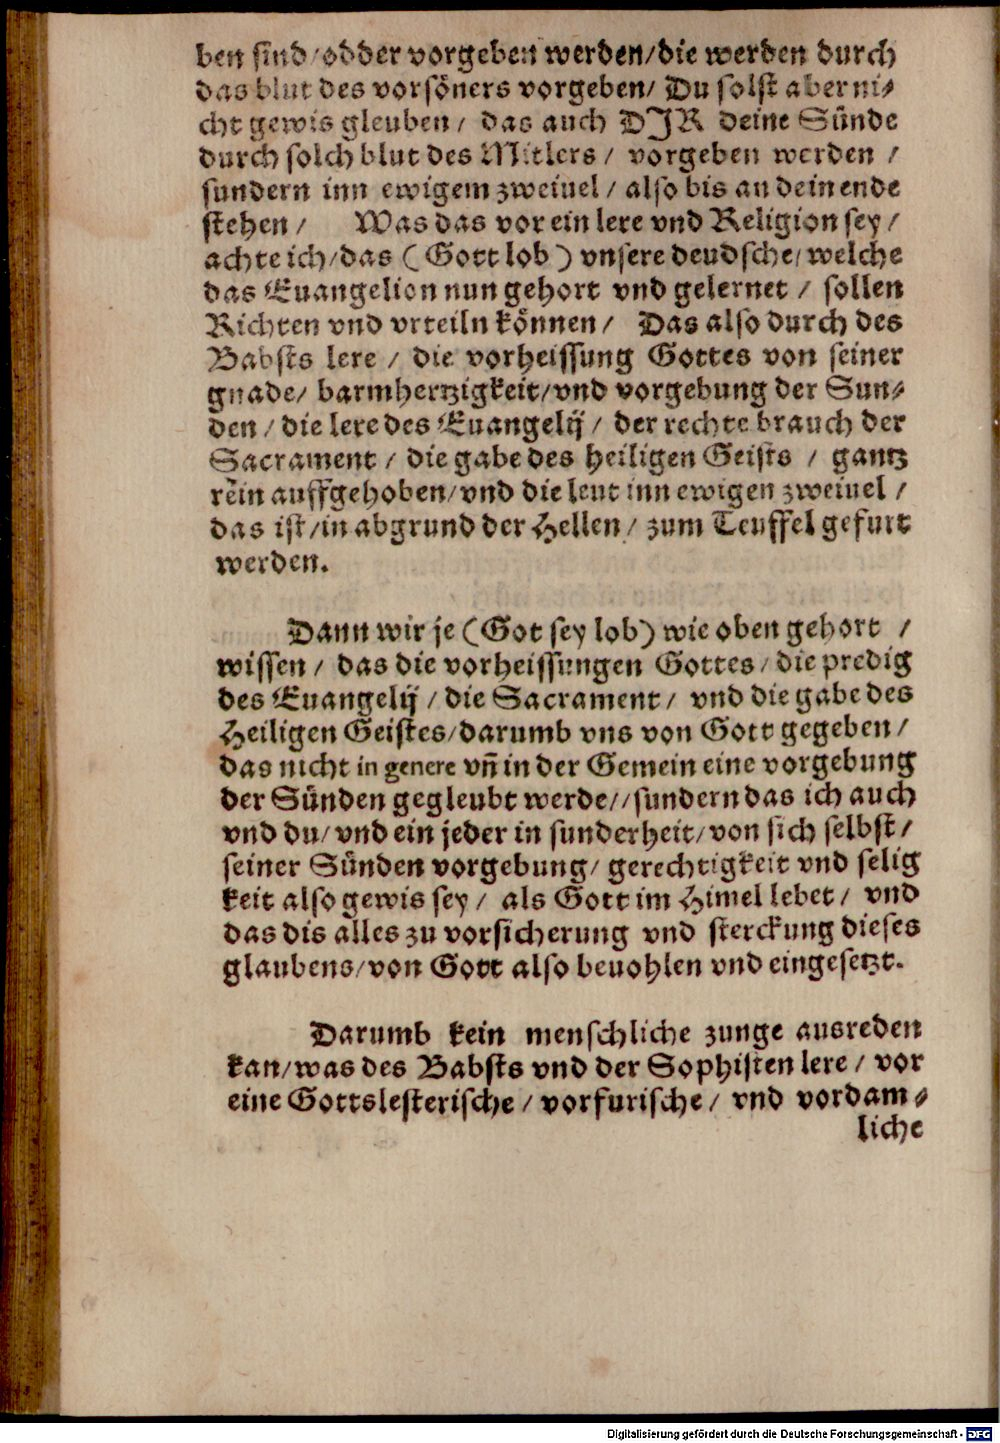 ben sind/odder vorgeben werden/die werden durch
das blut des vorsöners vorgeben/ Du solst aber ni⸗
cht gewis gleuben/ das auch DJR deine Sünde
durch solch blut des Mitlers/ vorgeben werden /
sundern inn ewigem zweiuel / also bis an dein ende
stehen / Was das vor ein lere vnd Religion sey /
achte ich/das (Gott lob) vnsere deudsche/welche
das Euangelion nun gehort vnd gelernet / sollen
Richten vnd vrteiln können / Das also durch des
Babsts lere / die vorheissung Gottes von seiner
gnade/ barmhertzigkeit/vnd vorgebung der Sun⸗
den / die lere des Euangelij / der rechte brauch der
Sacrament / die gabe des heiligen Geists / gantz
rein auffgehoben/vnd die leut inn ewigen zweiuel /
das ist/in abgrund der Hellen/ zum Teuffel gefurt
werden.
Dann wir je (Got sey lob) wie oben gehort /
wissen / das die vorheissungen Gottes/die predig
des Euangelij / die Sacrament / vnd die gabe des
Heiligen Geistes/darumb vns von Gott gegeben /
das nicht in genere vñ in der Gemein eine vorgebung
der Sünden gegleubt werde//sundern das ich auch
vnd du/vnd ein jeder in sunderheit/von sich selbst/
seiner Sünden vorgebung/ gerechtigkeit vnd selig
keit also gewis sey / als Gott im Himel lebet / vnd
das dis alles zu vorsicherung vnd sterckung dieses
glaubens/von Gott also beuohlen vnd eingesetzt.
Darumb kein menschliche zunge ausreden
kan/was des Babsts vnd der Sophisten lere / vor
eine Gottslesterische / vorfurische / vnd vordam⸗
liche
Digitalisierung gefördert durch die Deutsche Forschungsgemeinschaft - DFG